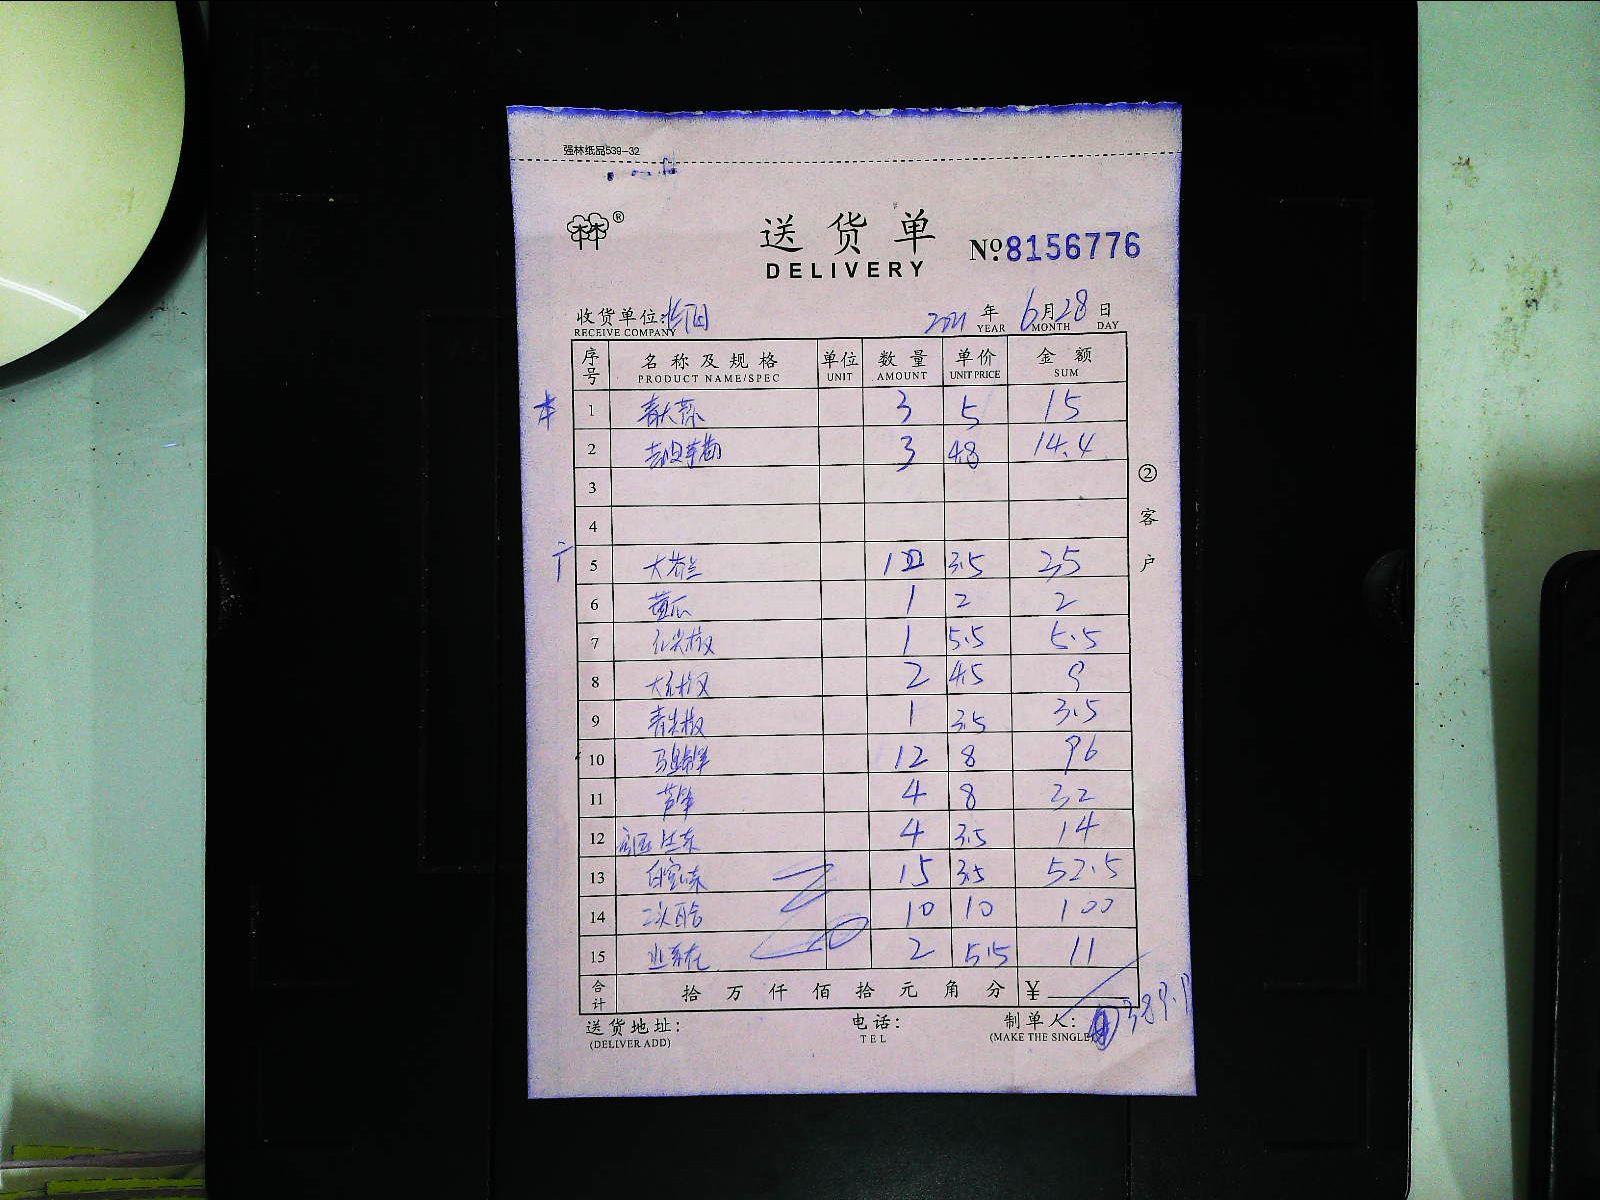 强林纸品539-32
林®
送货单
DELIVERY
№:8156776
收货单位:
RECEIVE COMPANY
2021 年 6 月 28 日
YEAR MONTH DAY
序号 名称及规格 单位 数量 单价 金额
PRODUCT NAME/SPEC UNIT AMOUNT UNIT PRICE SUM
本 1 青大 3 5 15
2 去皮 3 4.8 14.4
3
4
②客户
5 大 10 3.5 35
6 黄瓜 1 2 2
7 尖椒 1 5.5 5.5
8 大红椒 2 4.5 9
9 青尖椒 1 3.5 3.5
10 马蹄 12 8 96
11 芦笋 4 8 32
12 4 3.5 14
13 15 3.5 52.5
14 10 10 100
15 2 5.5 11
合计 拾 万 仟 佰 拾 元 角 分 ¥
389.9
送货地址: 电话: 制单人:
(DELIVER ADD) TEL (MAKE THE SINGLE)